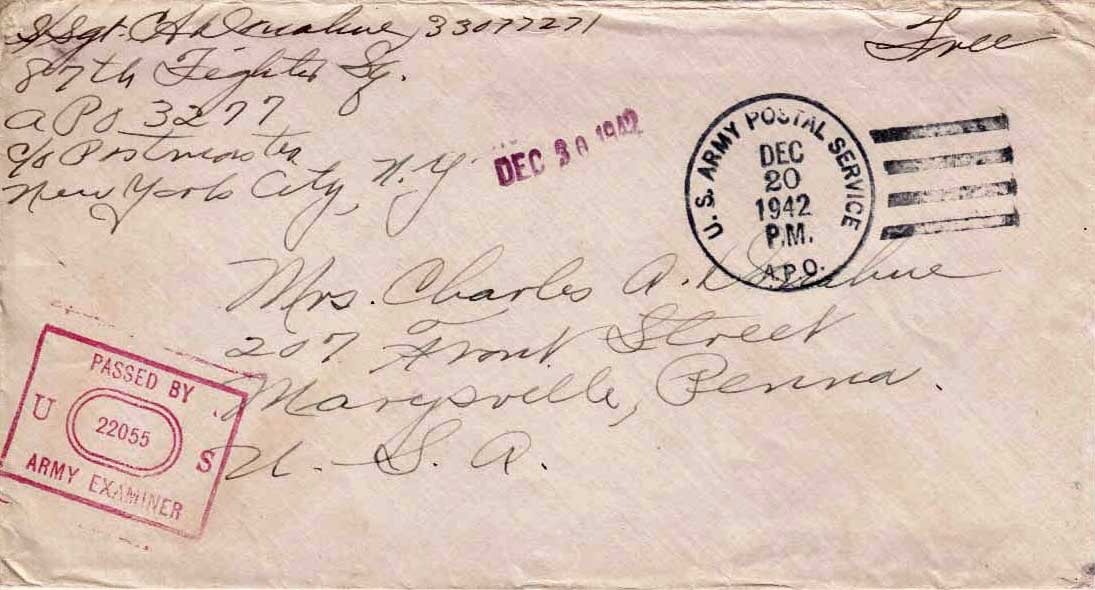 S/Sgt. C A Donahue, 33077271
87th Fighter Sq.
APO 3277
c/o Postmaster
New York City, N.Y.
Free
DEC 30 1942
U.S. ARMY POSTAL SERVICE
DEC
20
1942
P.M.
A.P.O.
Mrs. Charles A. Donahue
207 Front Street
Marysville, Penna.
U. S. A.
PASSED BY
U 22055 S
ARMY EXAMINER